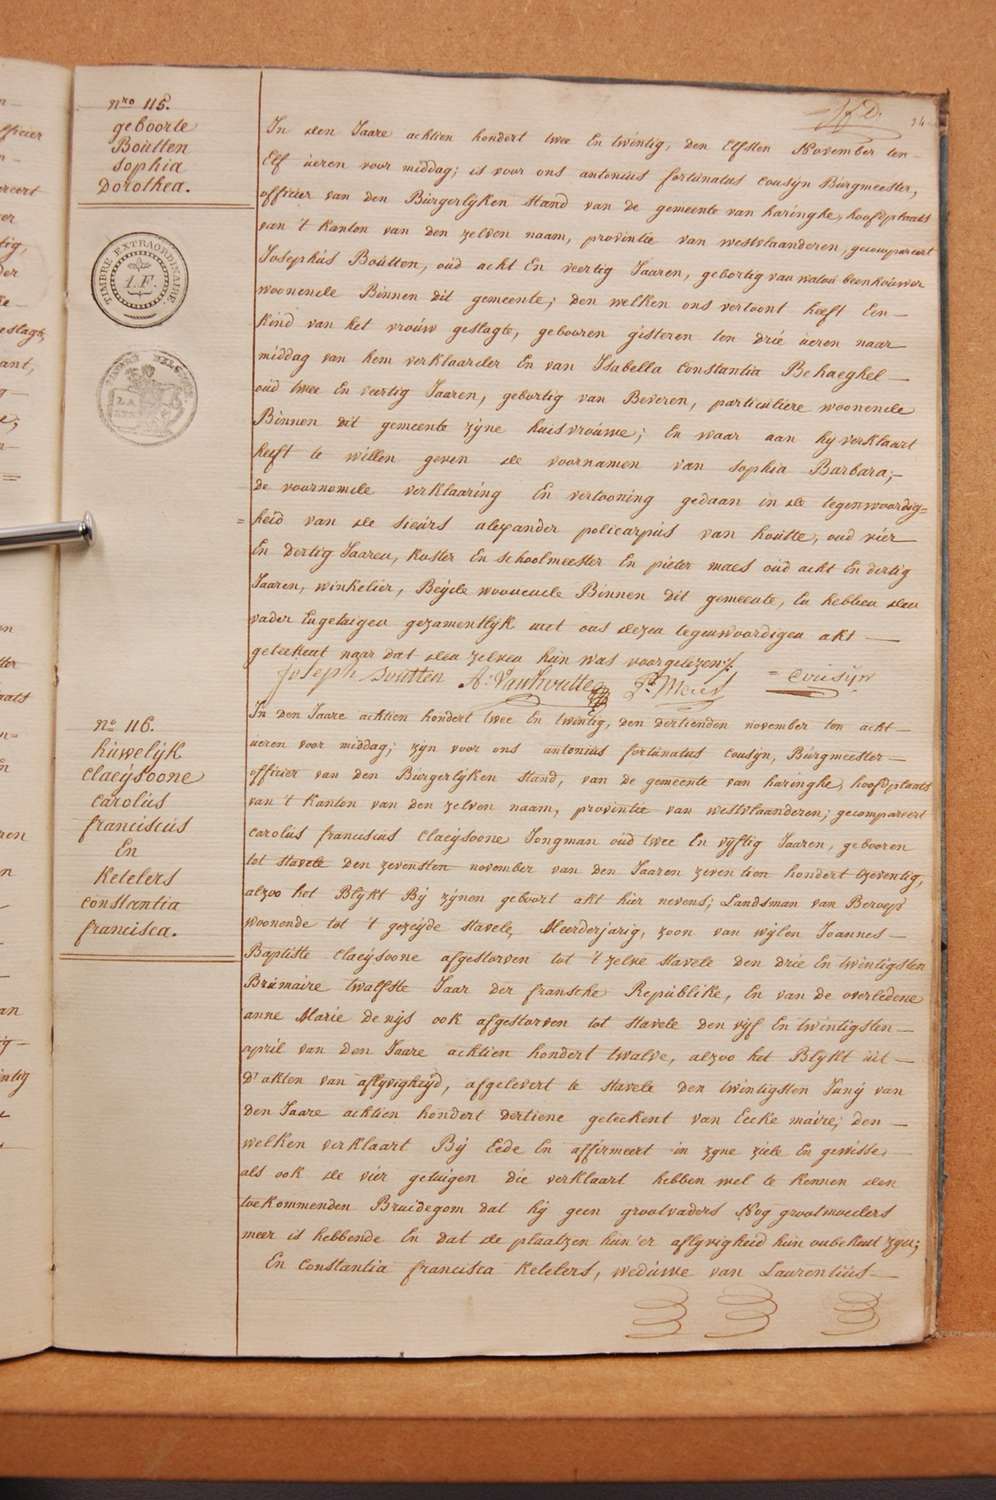 34
Nro 115.
geboorte
Boutten
Sophia
Dorothea.
TIMBRE EXTRAORDINAIRE
1. F.
In den Jaare achtien hondert twee En twintig, den Elfsten November ten
Elf ueren voor middag; is voor ons antonius fortunatus Cousyn Burgmeester,
officier van den Burgerlyken stand van de gemeente van haringhe, hoofdplaats
van 't kanton van den zelven naam, provintie van westvlaanderen, gecompareert
Josephus Boutten, oud acht En veertig Jaaren, gebortig van watou beenhouwer
woonende Binnen dit gemeente; den welken ons vertoont heeft Een
kind van het vrouw geslagte, gebooren gisteren ten drie ueren naar
middag van hem verklaarder En van Isabella Constantia Behaeghel
oud twee En veertig Jaaren, gebortig van Beveren, particuliere woonende
Binnen dit gemeente zyne huisvrouwe; En waar aan hy verklaart
heeft te willen geven de voornamen van Sophia Barbara;
de voornomde verklaaring En vertooning gedaan in de tegenwoordig=
=heid van de sieurs alexander policarpus van houtte, oud vier
En dertig Jaaren, koster En schoolmeester En pieter maes oud acht En dertig
Jaaren, winkelier, Beyde woonende Binnen dit gemeente, En hebben den
vader En getuigen gezamentlyk met ons dezen tegenwoordigen akt
geteekent naar dat den zelven hun was voorgelezen
Joseph Boutten A: Vanhoutte P: Maes Cousyn
No 116.
huwelyk
Claeysoone
Carolus
franciscus
En
Ketelers
Constantia
francisca.
In den Jaare achtien hondert twee En twintig, den dertienden november ten acht
ueren voor middag; zyn voor ons antonius fortunatus Cousyn, Burgmeester
officier van den Burgerlyken stand, van de gemeente van haringhe, hoofdplaats
van 't kanton van den zelven naam, provintie van westvlaanderen; gecompareert
Carolus franciscus Claeysoone Jongman oud twee En vyftig Jaaren, gebooren
tot stavele den zevensten november van den Jaaren zeventien hondert tzeventig,
alzoo het Blykt By zynen geboort akt hier nevens; Landsman van Beroep
woonende tot 't gezeyde stavele, Meerderjarig, zoon van wylen Joannes
Baptiste Claeysoone afgestorven tot 't zelve stavele den drie En twintigsten
Brumaire twalfste Jaar der fransche Republike, En van de overledene
anne Marie de nys ook afgestorven tot stavele den vyf En twintigsten
april van den Jaare achtien hondert twalve, alzoo het Blykt uit
d' akten van aflyvigheyd, afgelevert te stavele den twintigsten Juny van
den Jaare achtien hondert dertiene geteekent van Eecke maire; den
welken verklaart By Eede En affirmeert in zyne ziele En gewisse
als ook de vier getuigen die verklaart hebben wel te kennen den
toekommenden Bruidegom dat hy geen grootvaders Nog grootmoeders
meer is hebbende En dat de plaatzen hun'er aflyvigheid hun onbekent zyn;
En Constantia francisca Ketelers, weduwe van Laurentius